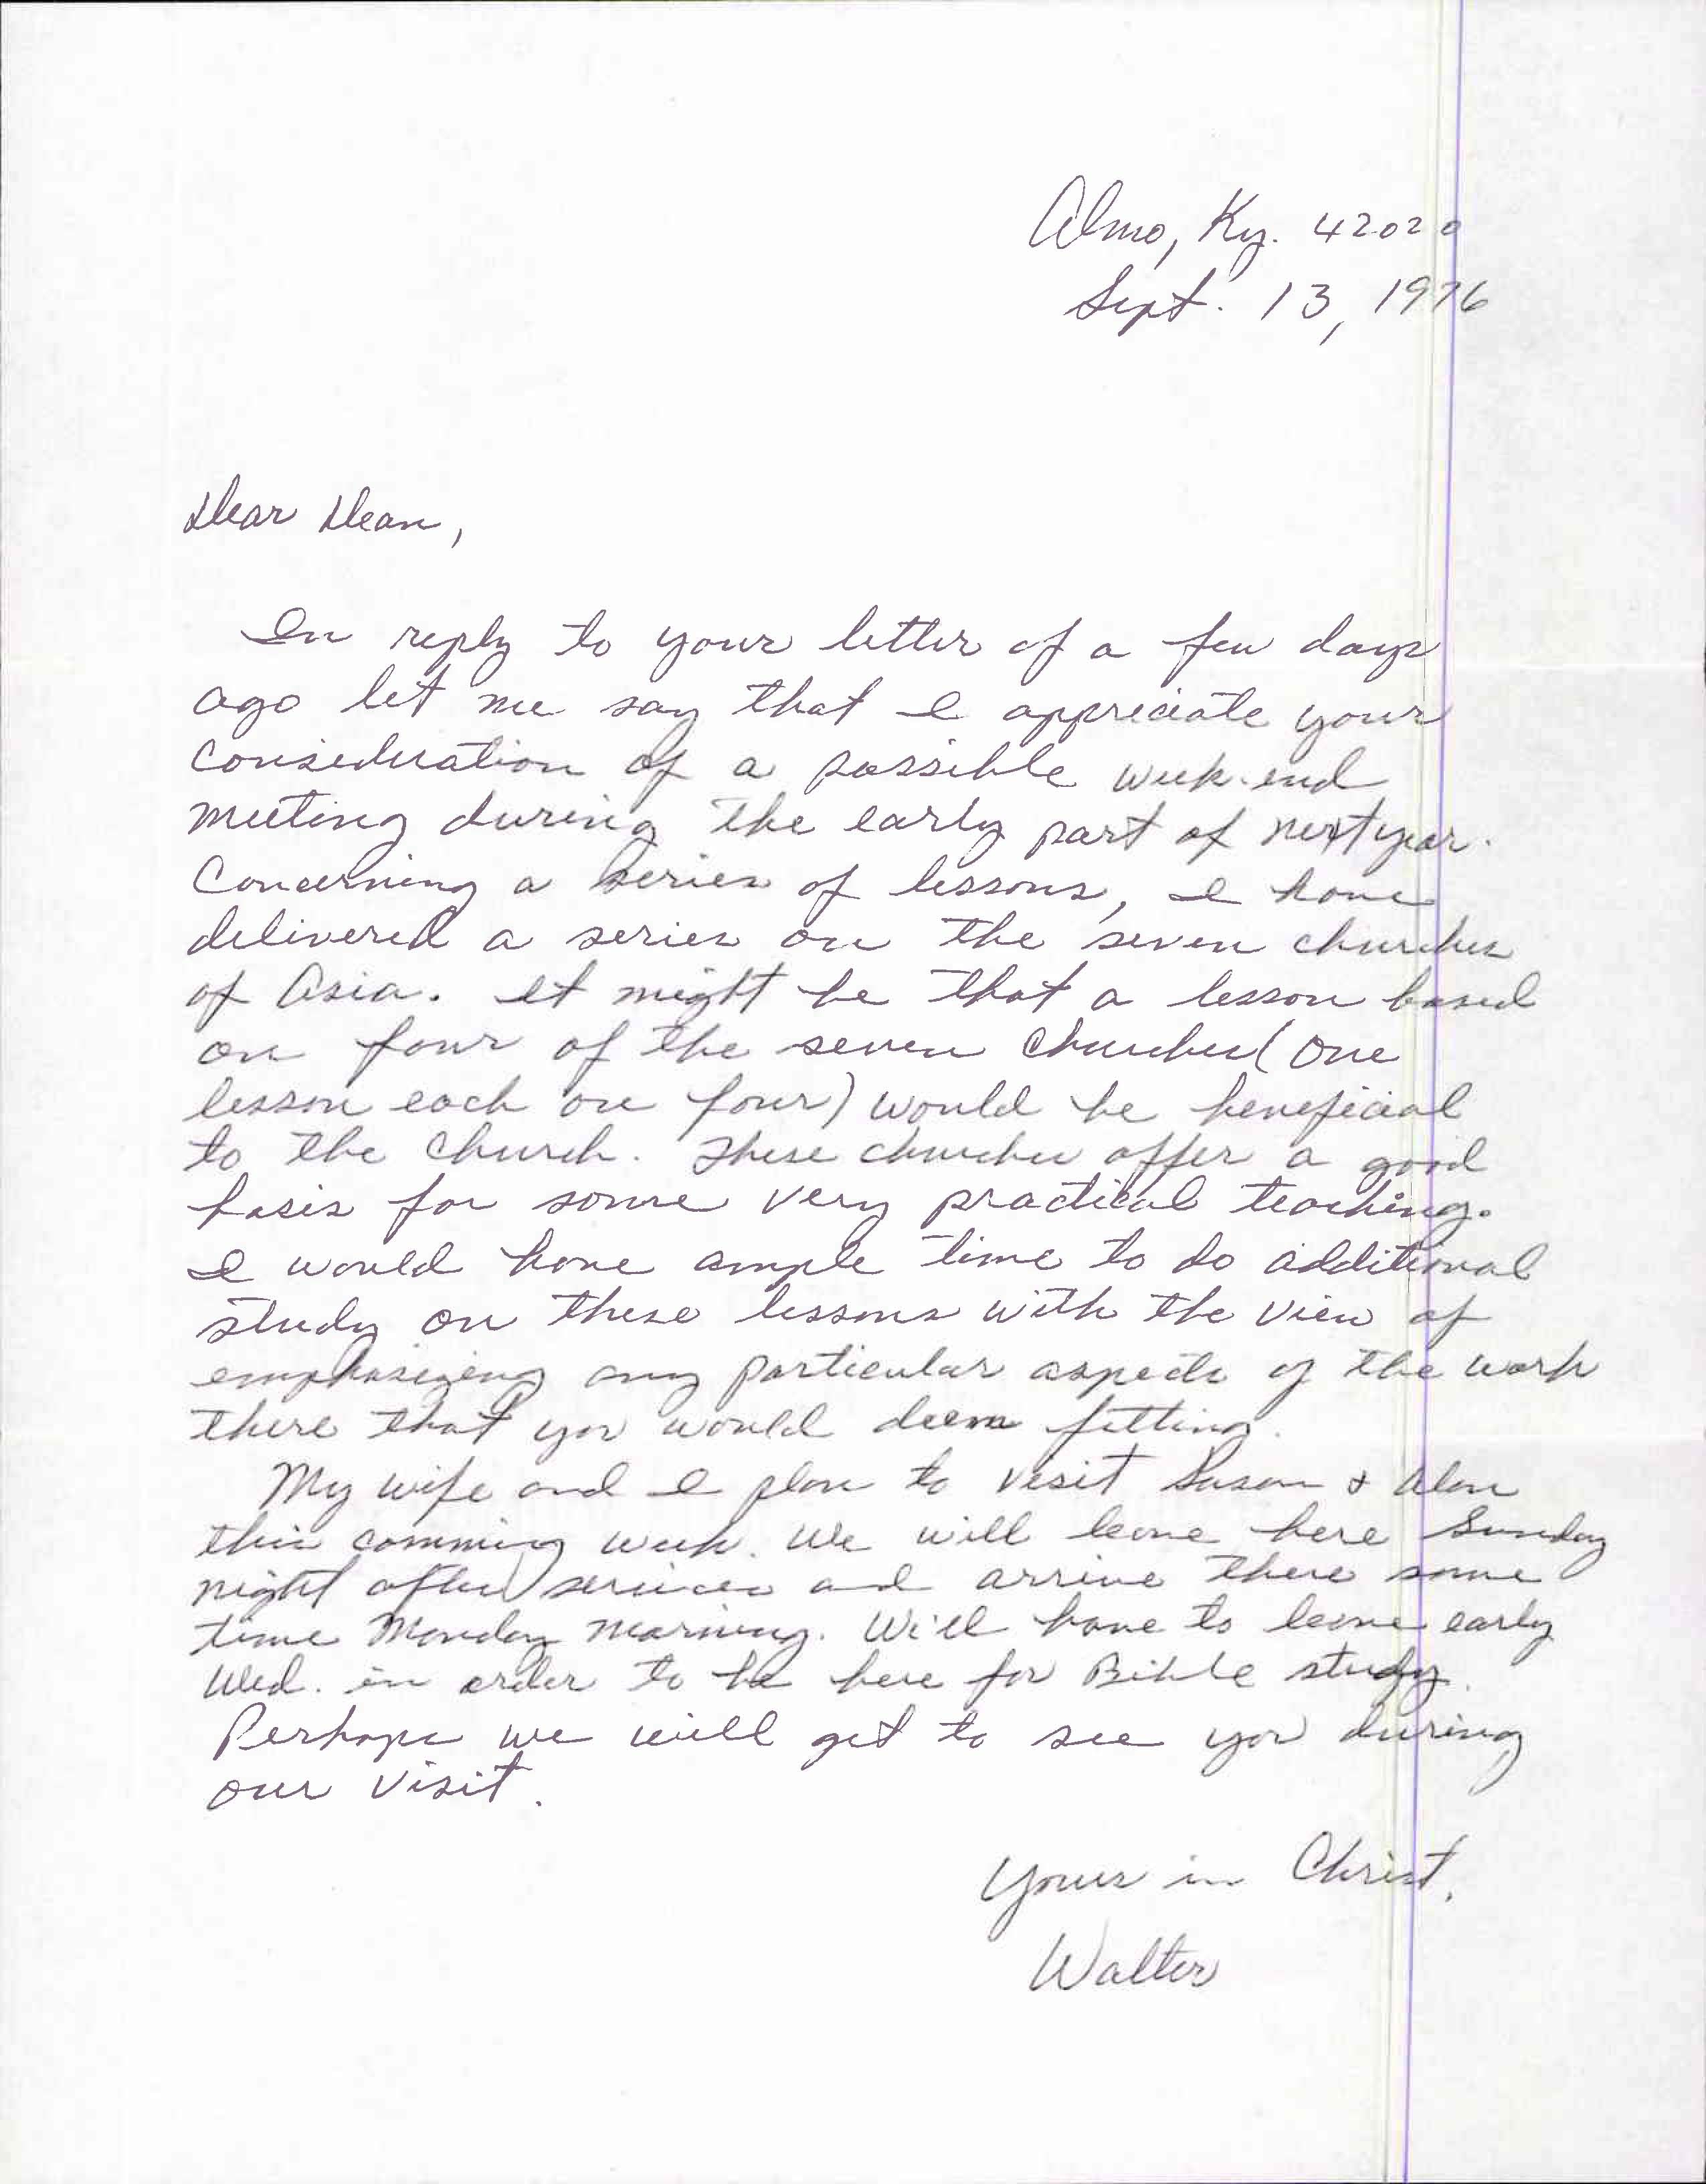 Almo, Ky. 42020
Sept. 13, 1976
Dear Dean,
In reply to your letter of a few days
ago let me say that I appreciate your
consideration of a possible week-end
meeting during the early part of next year.
Concerning a series of lessons, I have
delivered a series on the seven churches
of Asia. It might be that a lesson based
on four of the seven churches (one
lesson each on four) would be beneficial
to the church. These churches offer a good
basis for some very practical teaching.
I would have ample time to do additional
study on these lessons with the view of
emphasizing any particular aspects of the work
there that you would deem fitting.
My wife and I plan to visit Susan & Alan
this comming week. We will leave here Sunday
night after services and arrive there some
time Monday morning. Will have to leave early
Wed. in order to be here for Bible study.
Perhaps we will get to see you during
our visit.
Yours in Christ,
Walter